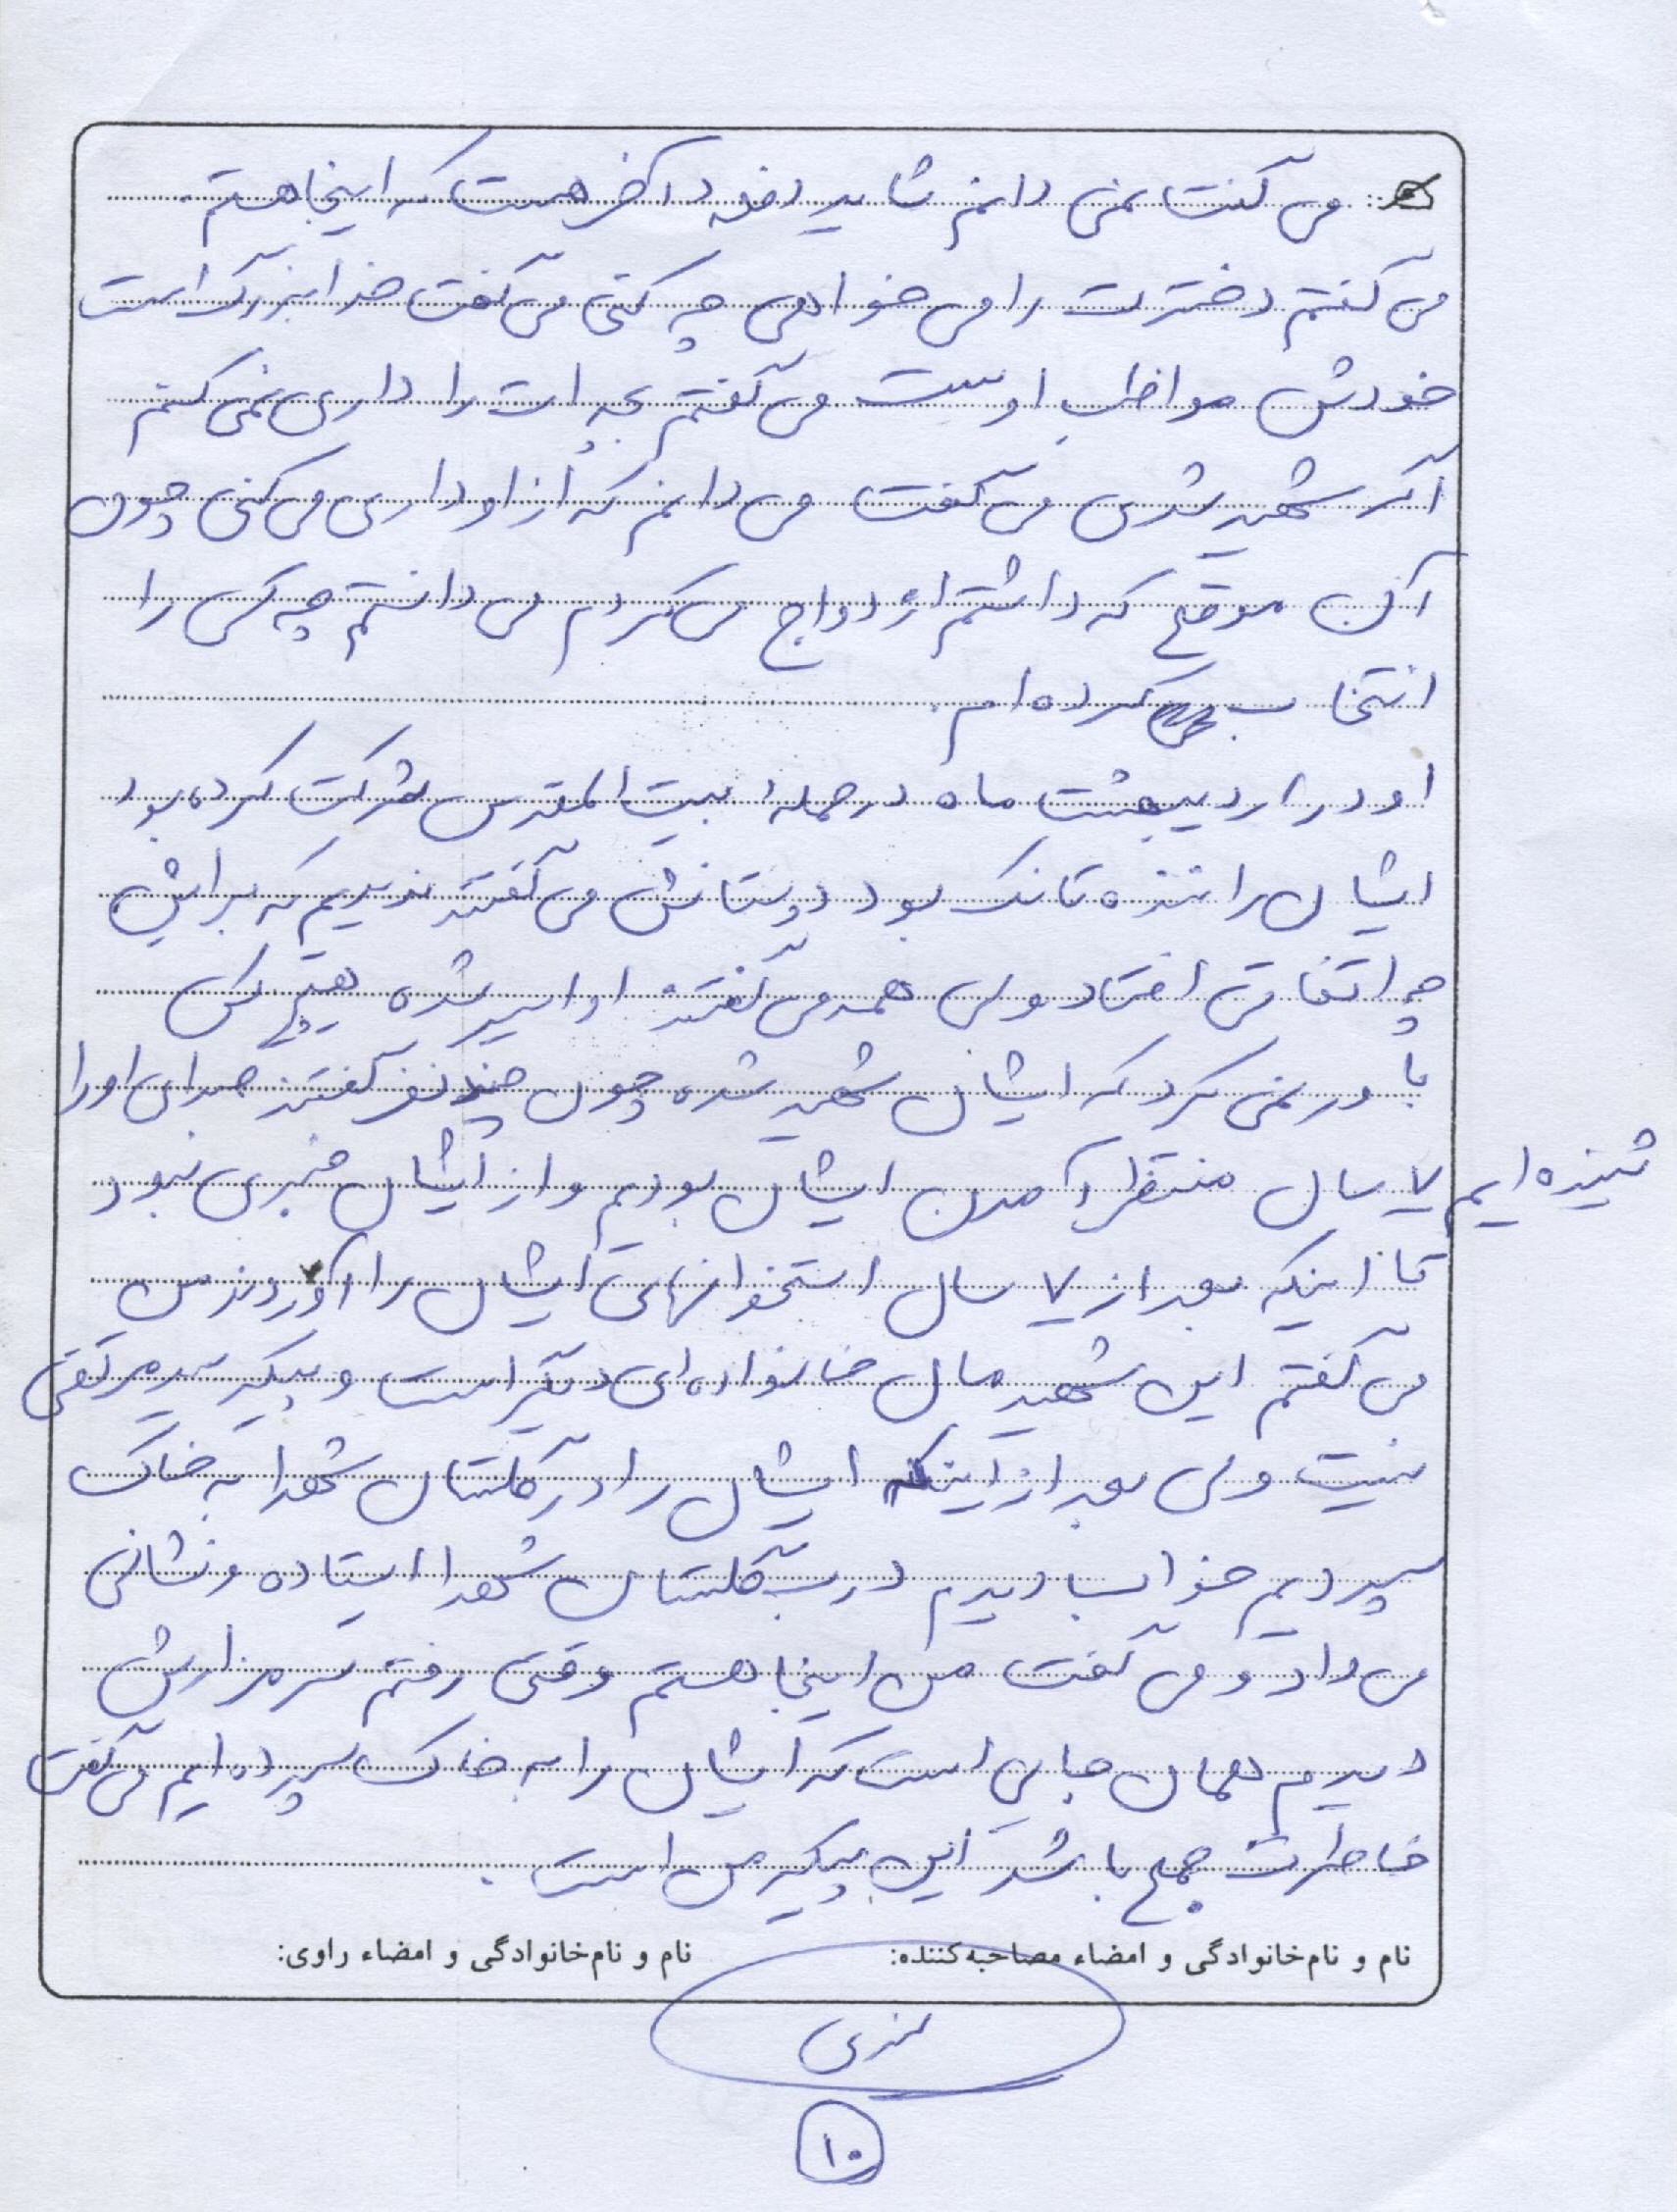 می گفت نمی دانم شاید دفعه آخر هست که اینجا هستم.
می گفتم دخترت را می خواهی چه کنی می گفت خدا بزرگ است
خودش مواظب اوست می گفتم بچه ات را داری نمی کنم
اگر شهید شدی می گفت می دانم که از او داری می کنی چون
آن موقع که داشتم ازدواج می کردم می دانستم چه کسی را
انتخاب کرده ام.
او در اردیبهشت ماه در حمله بیت المقدس شرکت کرده بود
ایشان راننده تانک بود دوستانش می گفتند ندیدیم که برایش
چه اتفاقی افتاد ولی همه می گفتند او اسیر شده هیچ کس
باور نمی کرد که ایشان شهید شده چون چند نفر گفتند صدای او را
شنیده ایم ۷ سال منتظر آمدن ایشان بودیم و از ایشان خبری نبود
تا اینکه بعد از ۷ سال استخوانهای ایشان را آوردند من
می گفتم این شهید مال خانواده ای دیگر است و پیکر سید مرتضی
نیست ولی بعد از اینکه ایشان را در گلستان شهدا به خاک
سپردیم خواب دیدم درب گلستان شهدا ایستاده و نشانی
می داد و می گفت من اینجا هستم وقتی رفتم سر مزارش
دیدم همان جایی است که ایشان را به خاک سپرده ایم می گفت
خاطرت جمع باشد این پیکر من است.
نام و نام‌خانوادگی و امضاء مصاحبه‌کننده: نام و نام‌خانوادگی و امضاء راوی:
۱۰